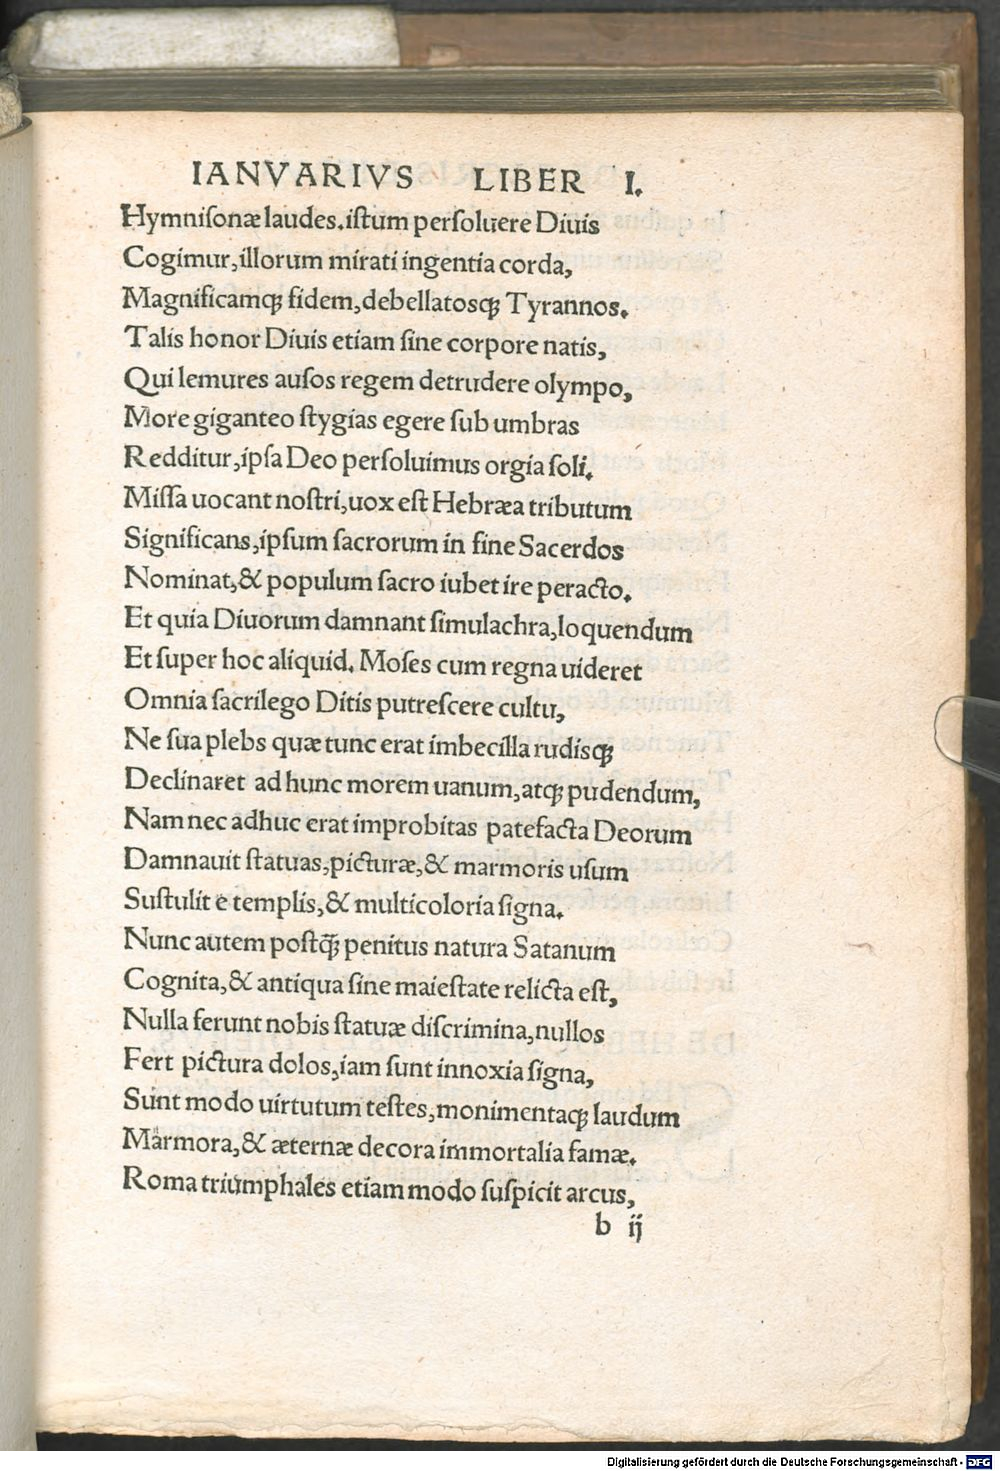 IANVARIVS LIBER I.
Hymniſonæ laudes.iſtum perſoluere Diuis
Cogimur,illorum mirati ingentia corda,
Magnificamqꝫ fidem,debellatosqꝫ Tyrannos.
Talis honor Diuis etiam ſine corpore natis,
Qui lemures auſos regem detrudere olympo,
More giganteo ſtygias egere ſub umbras
Redditur,ipſa Deo perſoluimus orgia ſoli.
Miſſa uocant noſtri,uox eſt Hebræa tributum
Significans,ipſum ſacrorum in fine Sacerdos
Nominat,& populum ſacro iubet ire peracto.
Et quia Diuorum damnant ſimulachra,loquendum
Et ſuper hoc aliquid. Moſes cum regna uideret
Omnia ſacrilego Ditis putreſcere cultu,
Ne ſua plebs quæ tunc erat imbecilla rudisqꝫ
Declinaret ad hunc morem uanum,atqꝫ pudendum,
Nam nec adhuc erat improbitas patefacta Deorum
Damnauit ſtatuas,picturæ,& marmoris uſum
Suſtulit e templis,& multicoloria ſigna.
Nunc autem poſtqꝫ̃ penitus natura Satanum
Cognita,& antiqua ſine maieſtate relicta eſt,
Nulla ferunt nobis ſtatuæ diſcrimina,nullos
Fert pictura dolos,iam ſunt innoxia ſigna,
Sunt modo uirtutum teſtes,monimentaqꝫ laudum
Marmora,& æternæ decora immortalia famæ.
Roma triumphales etiam modo ſuſpicit arcus,
b ij
Digitalisierung gefördert durch die Deutsche Forschungsgemeinschaft - DFG